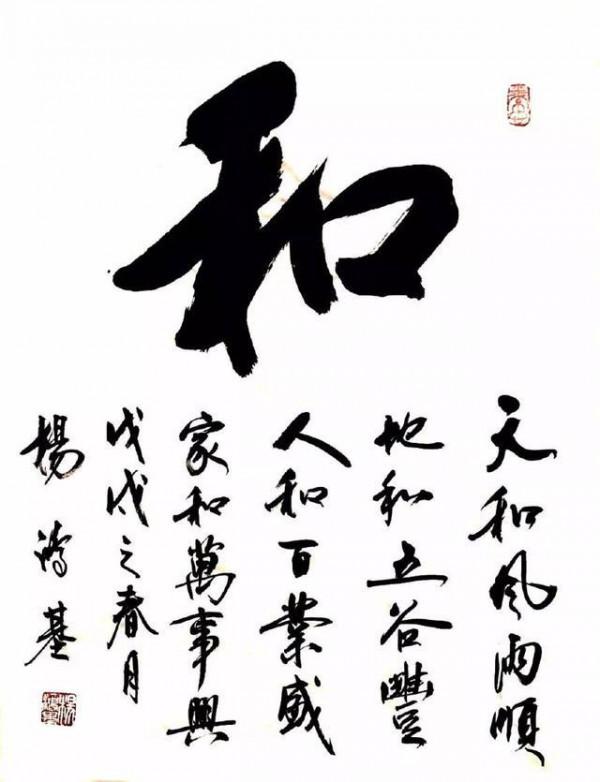 和
天和风雨順
地和五谷豐
人和百業盛
家和萬事興
戊戌之春月
楊鸿基